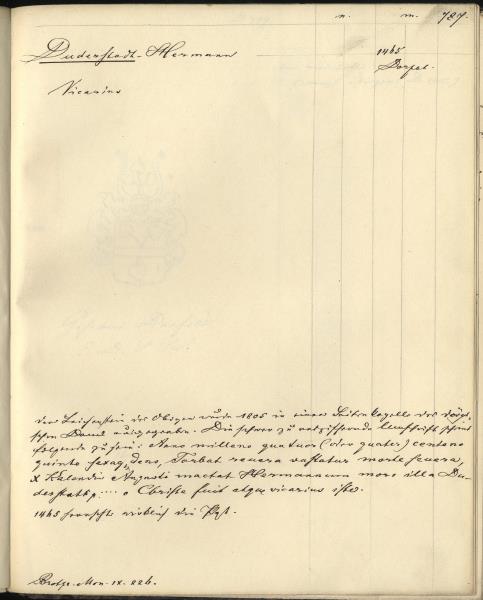 n. m. 787.
Duderstadt Hermann 1465
Dorpat.
Vicarius
der Leichenstein des Obigen wurde 1805 in einer Seiten Capelle des dörpt-
schen Doms ausgegraben. Die schwer zu entziffernde Innschrift scheint
folgende zu sein: Anno milleno quatuor (oder quater) centeno
quinto sexag deno, Torbat severa vastatur morte severa,
X Kalendis Augusti mactat Hermannum mors illa Du-
derstatt p: .... o Christe fuit atque vicarius iste.
1465 herrschte wirklich die Pest.
Brotze. Mon. IX. 226.